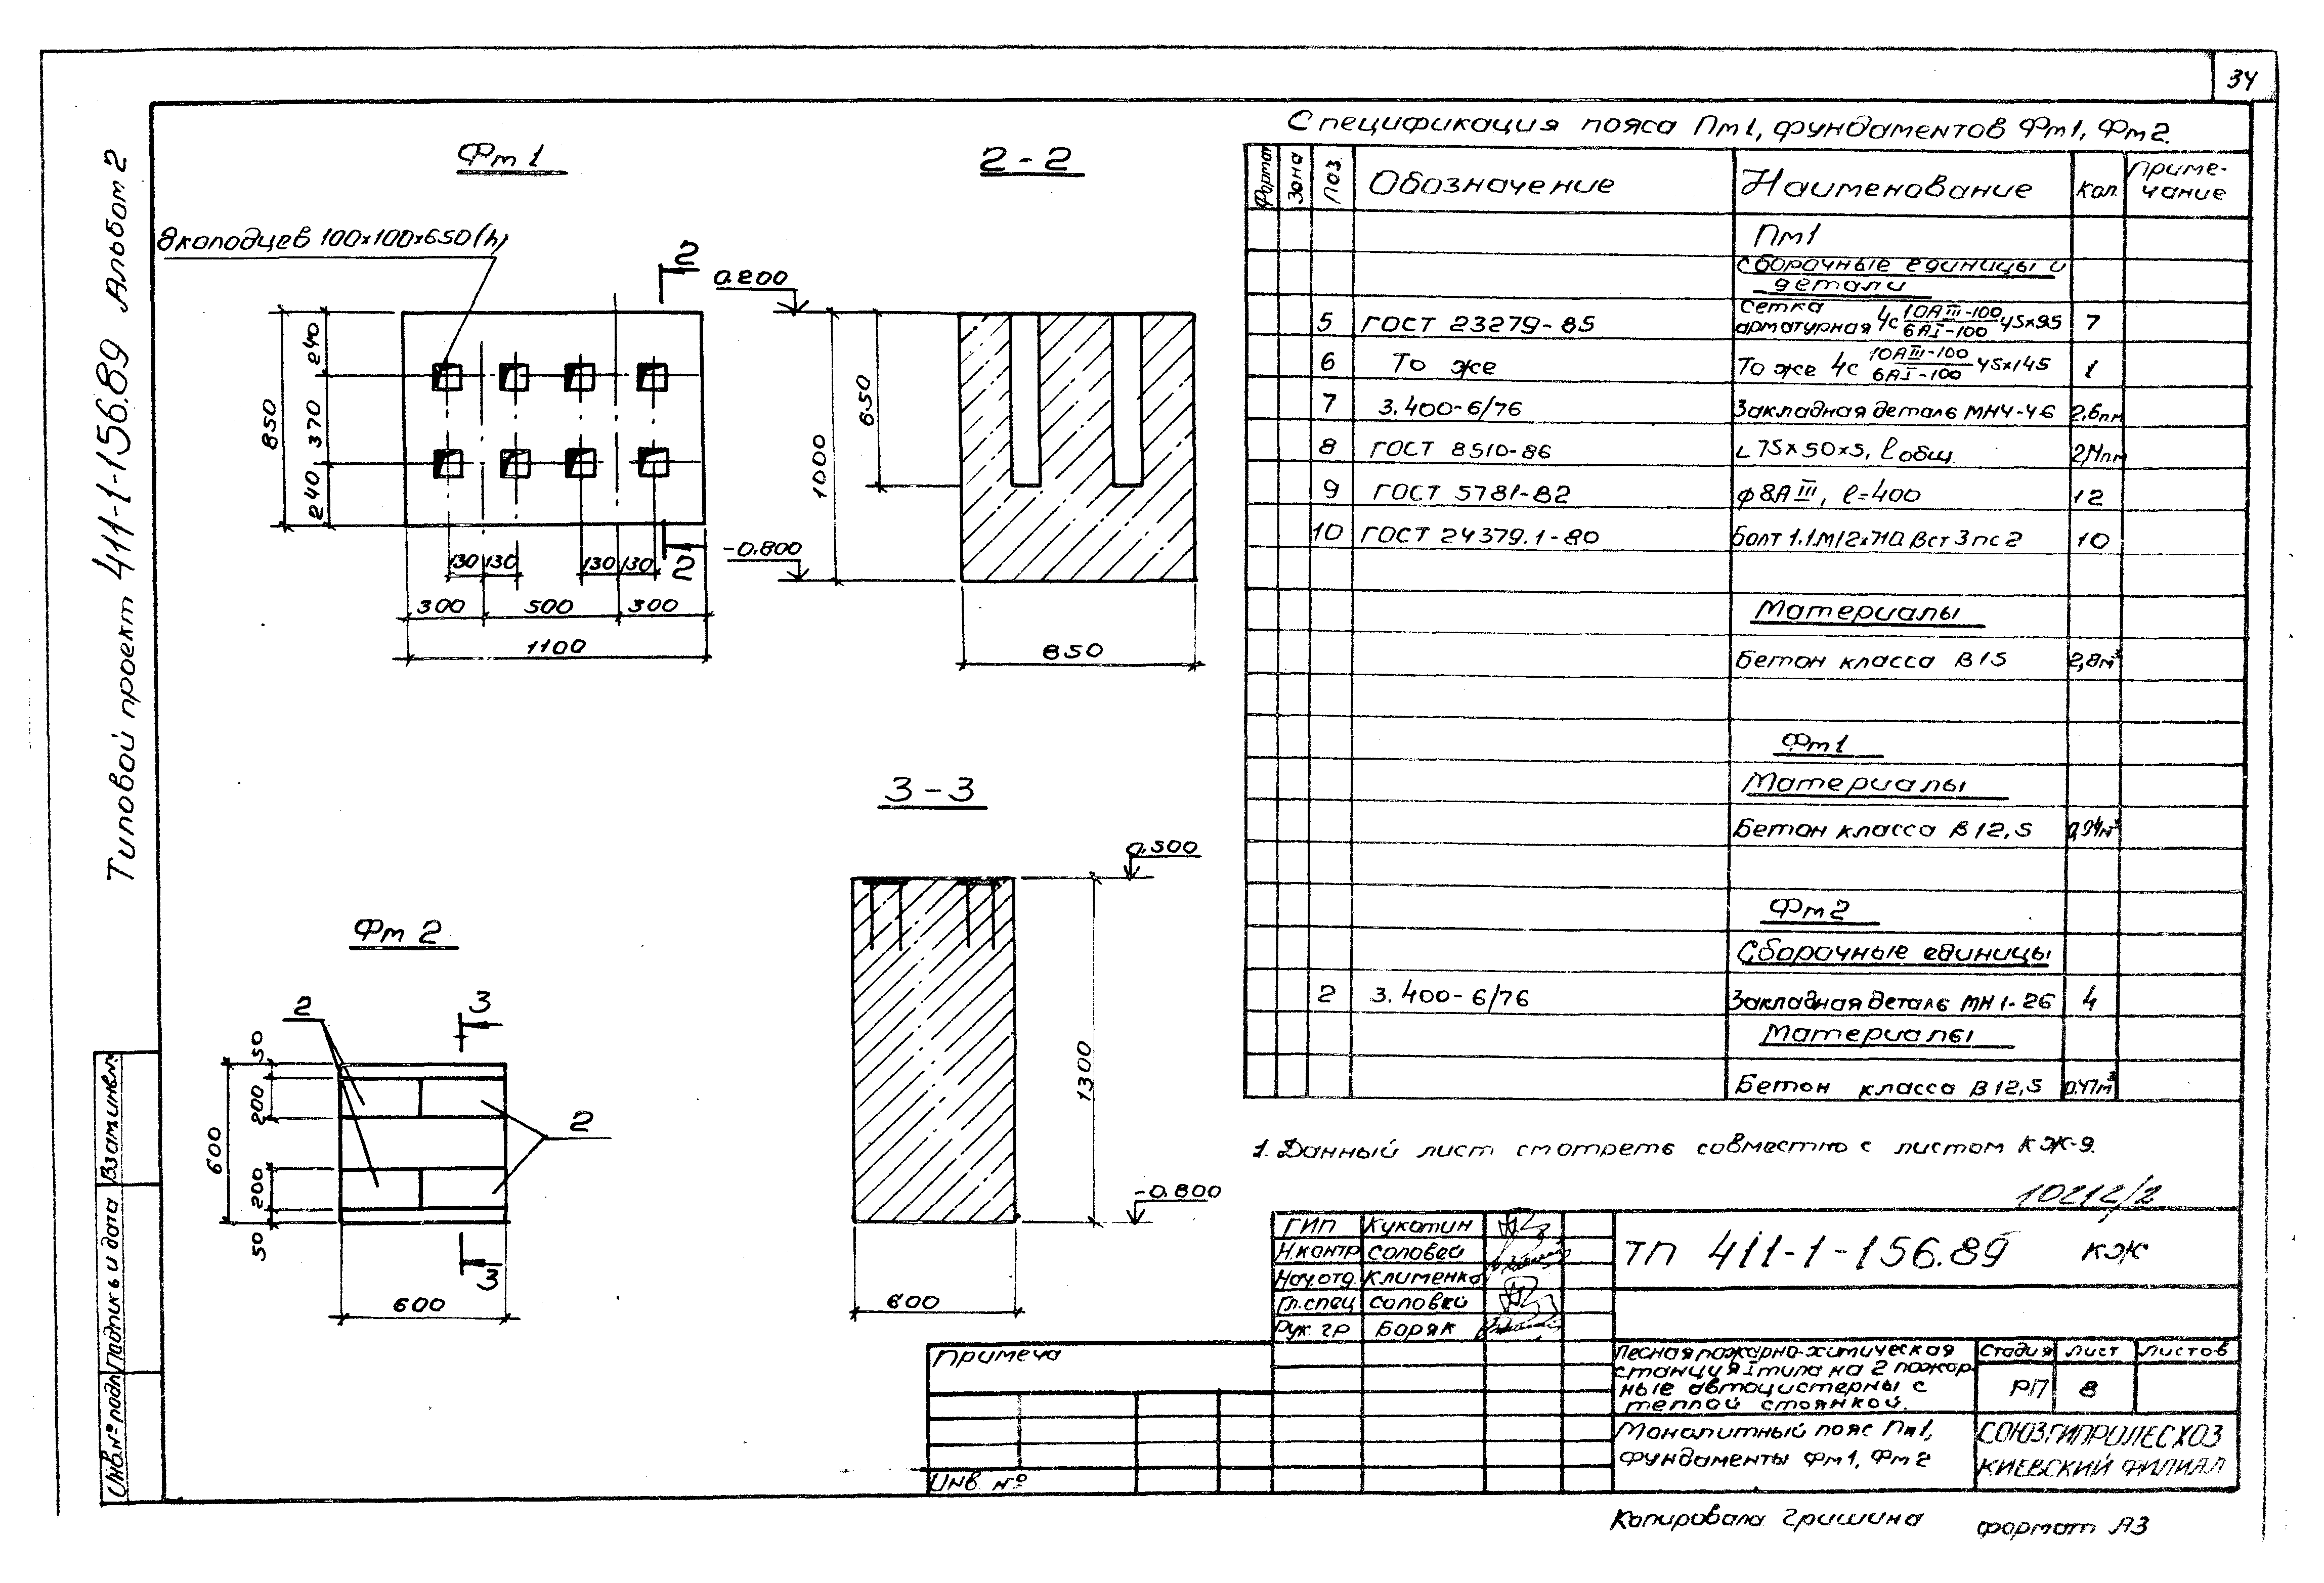 34
Типовой проект 411-1-156.89 Альбом 2
Фм1
8 колодцев 100х100х650(h)
2
2
240
370
240
850
130 130 130 130
300 500 300
1100
2-2
0.200
-0.800
650
1000
850
3-3
0.500
-0.800
1300
600
Фм 2
2
3
2
3
50
200
200
50
600
600
Спецификация пояса Пм1, фундаментов Фм1, Фм2.
Формат Зона Поз. Обозначение Наименование Кол. Приме-
чание
Пм1
Сборочные единицы и
детали
5 ГОСТ 23279-85 Сетка арматурная 4с 10АIII-100/6АI-100 45х95 7
6 То же То же 4с 10АIII-100/6АI-100 45х145 1
7 3.400-6/76 Закладная деталь МН4-46 2.6п.м
8 ГОСТ 8510-86 ∟75х50х5, ℓобщ.
9 ГОСТ 5781-82 ф8АIII, ℓ=400 12
10 ГОСТ 24379.1-80 Болт 1.1.М12х710. Вст3пс2 10
Материалы
Бетон класса В15 2,8м³
Фм1
Материалы
Бетон класса В12,5 0,94м³
Фм2
Сборочные единицы
2 3.400-6/76 Закладная деталь МН1-26 4
Материалы
Бетон класса В12,5 0.47м³
1. Данный лист смотреть совместно с листом КЖ-9.
10212/2
ГИП Кукотин
Н.контр Соловей
Нач.отд. Клименко
Гл.спец Соловей
Рук. гр Боряк
ТП 411-1-156.89 КЖ
Лесная пожарно-химическая
станция I типа на 2 пожар
ные автоцистерны с
теплой стоянкой.
Стадия Лист Листов
РП 8
Монолитный пояс Пм1,
фундаменты Фм1, Фм2
СОЮЗГИПРОЛЕСХОЗ
КИЕВСКИЙ ФИЛИАЛ
Примеча
Инв. №
Взам.инв.№
Подпись и дата
Инв.№ подп
Копировала Гришина формат А3